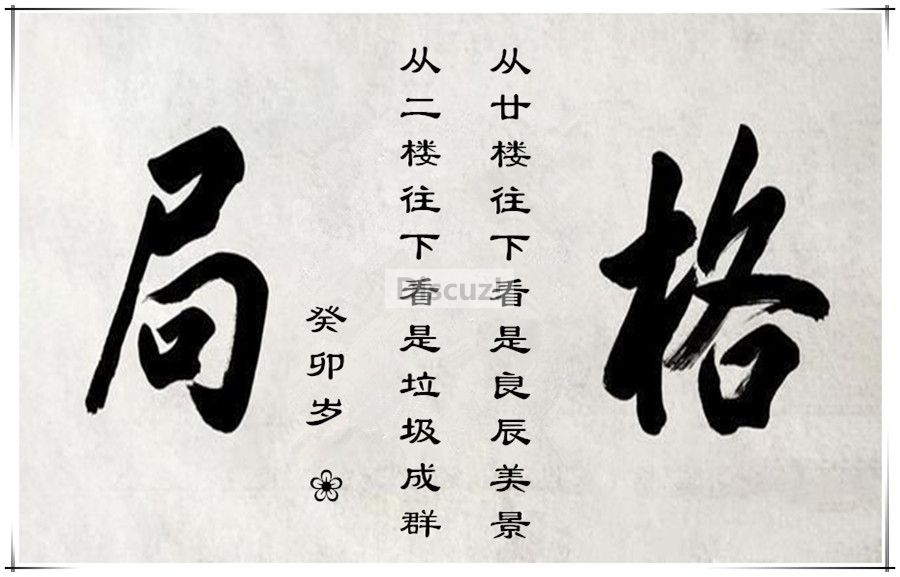 格
从廿楼往下看是良辰美景
从二楼往下看是垃圾成群
癸卯岁
局
Discuz!